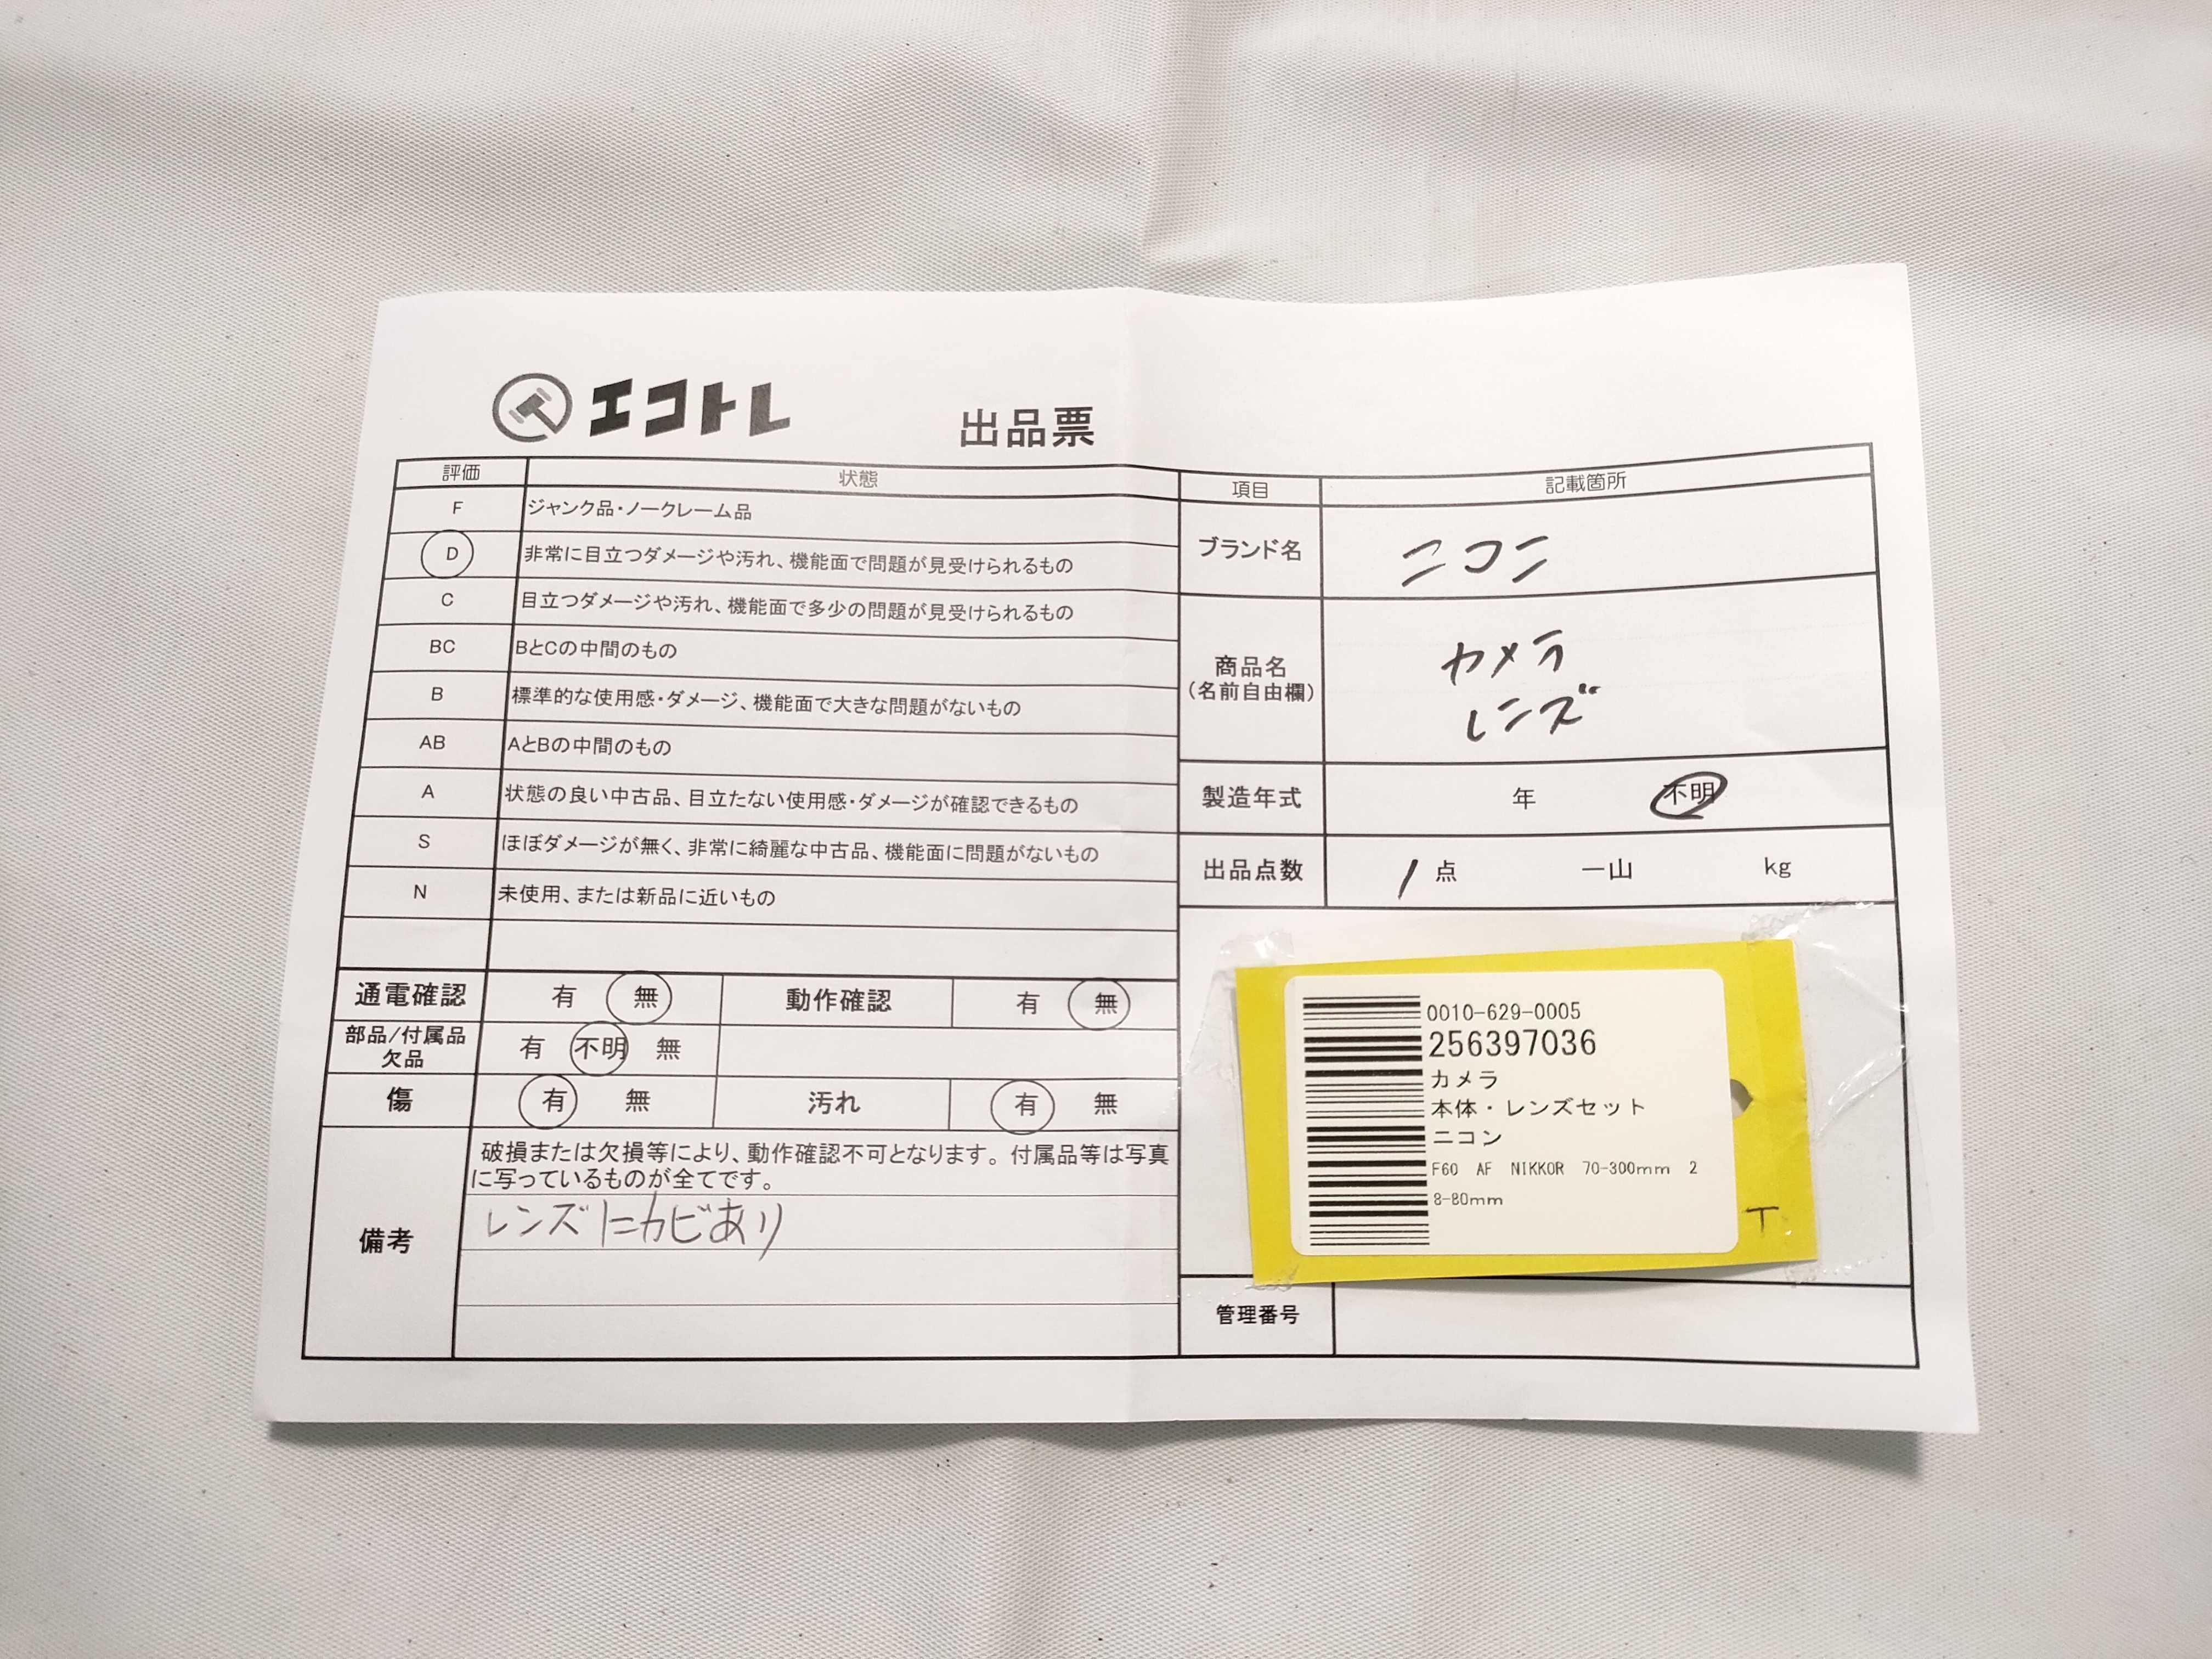 エコトレ
出品票
評価 状態
F ジャンク品・ノークレーム品
D 非常に目立つダメージや汚れ、機能面で問題が見受けられるもの
C 目立つダメージや汚れ、機能面で多少の問題が見受けられるもの
BC BとCの中間のもの
B 標準的な使用感・ダメージ、機能面で大きな問題がないもの
AB AとBの中間のもの
A 状態の良い中古品、目立たない使用感・ダメージが確認できるもの
S ほぼダメージが無く、非常に綺麗な中古品、機能面に問題がないもの
N 未使用、または新品に近いもの
通電確認 有 無 動作確認 有 無
部品/付属品
欠品 有 不明 無
傷 有 無 汚れ 有 無
備考
破損または欠損等により、動作確認不可となります。付属品等は写真
に写っているものが全てです。
レンズにカビあり
項目 記載箇所
ブランド名 ニコン
商品名
(名前自由欄)
カメラ
レンズ
製造年式 年 不明
出品点数 1 点 一山 kg
0010-629-0005
256397036
カメラ
本体・レンズセット
ニコン
F60 AF NIKKOR 70-300mm 2
8-80mm
T
管理番号